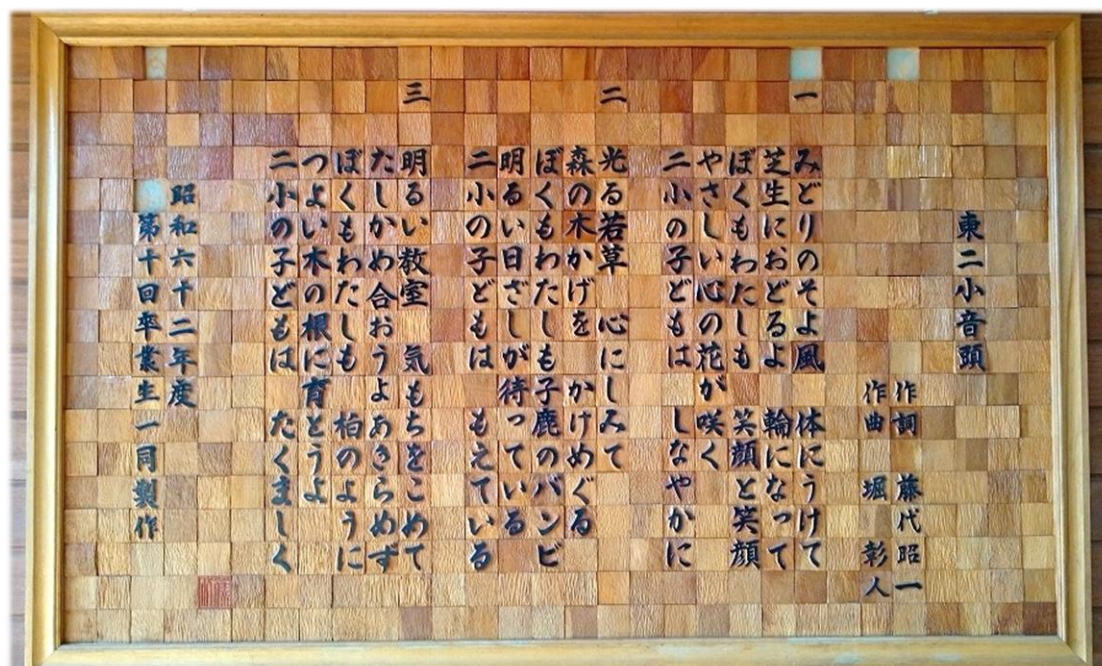 東二小音頭
作詞 藤代昭一
作曲 堀 彰人
一
みどりのそよ風 体にうけて
芝生におどるよ 輪になって
ぼくもわたしも 笑顔と笑顔
やさしい心の花が咲く
二小の子どもは しなやかに
二
光る若草 心にしみて
森の木かげを かけめぐる
ぼくもわたしも子鹿のバンビ
明るい日ざしが待っている
二小の子どもは もえている
三
明るい教室 気もちをこめて
たしかめ合おうよあきらめず
ぼくもわたしも 柏のように
つよい木の根に育とうよ
二小の子どもは たくましく
昭和六十二年度
第十回卒業生一同製作